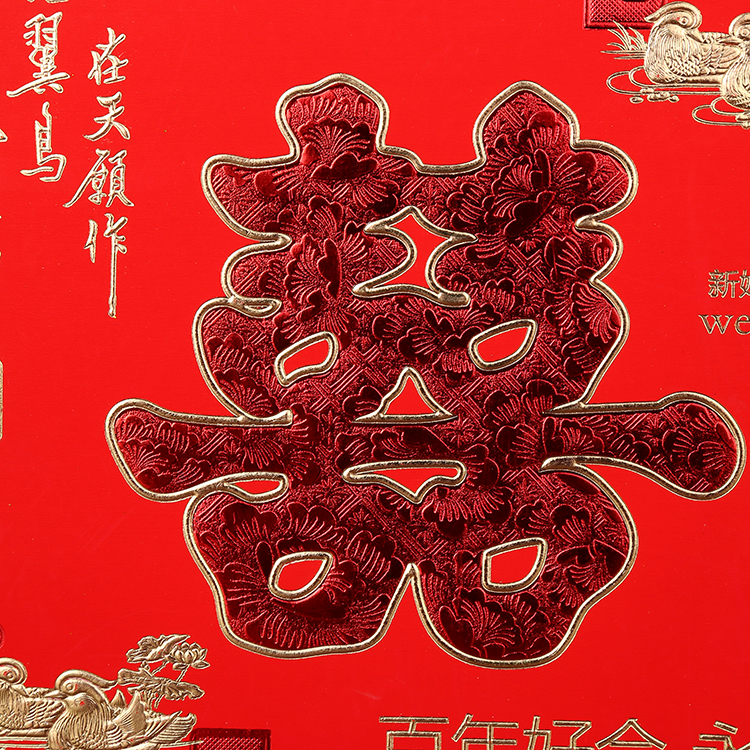 在天願作
翼鳥
囍
新
we
百年好合 永